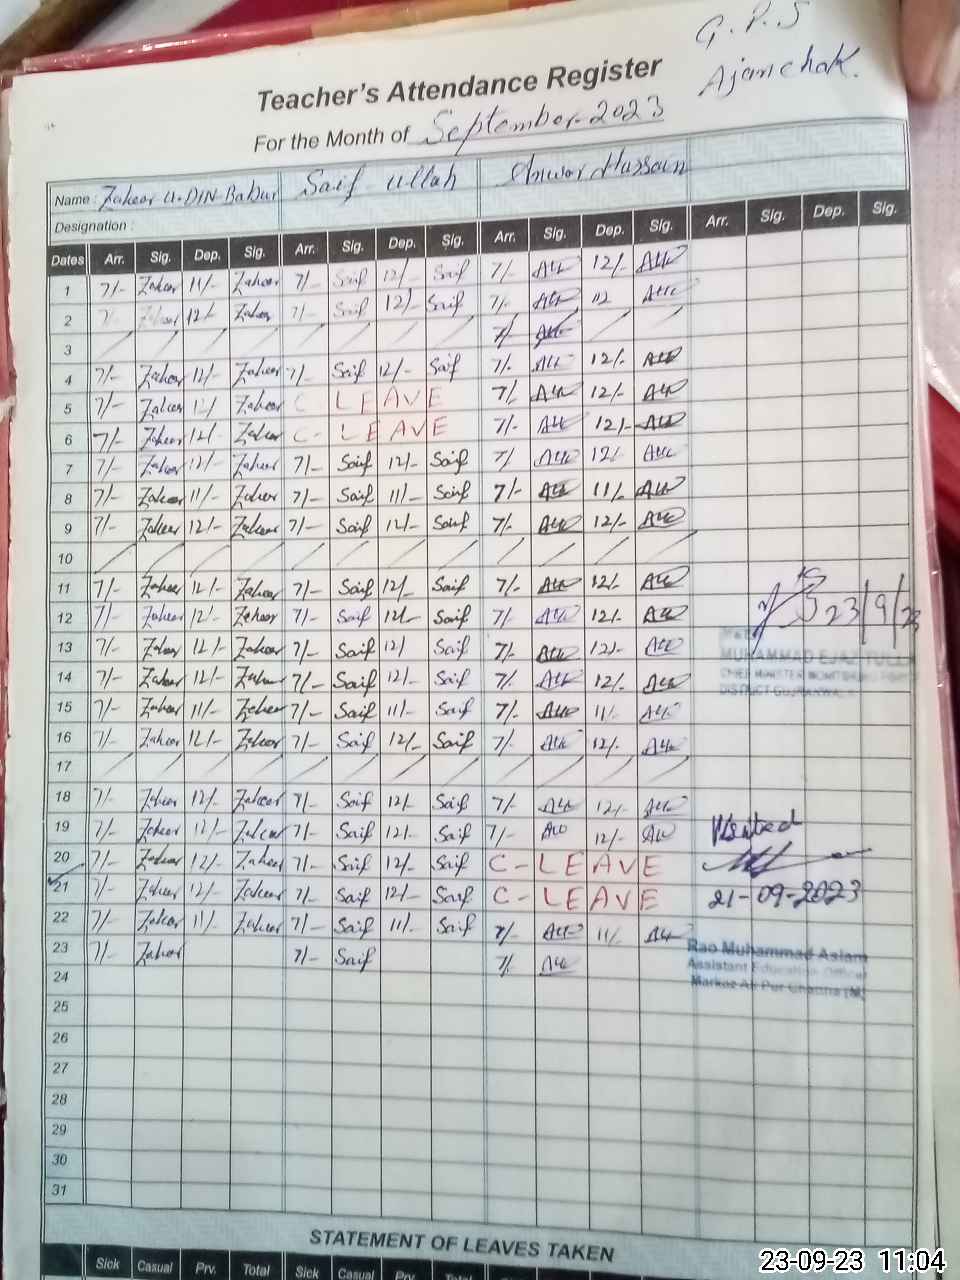 G.P.S
Ajanchak.
Teacher's Attendance Register
For the Month of September-2023
Name : Zaheer U-DIN-Babur Saif ullah Anwar Hussain
Designation :
Dates Arr. Sig. Dep. Sig. Arr. Sig. Dep. Sig. Arr. Sig. Dep. Sig. Arr. Sig. Dep. Sig.
1 7/- Zaheer 11/- Zaheer 7/- Saif 12/- Saif 7/- 12/-
2 7/- Zaheer 12/- Zaheer 7/- Saif 12/- Saif 7/-
3 7/-
4 7/- Zaheer 12/- Zaheer 7/- Saif 12/- Saif 7/- 12/-
5 7/- Zaheer 12/ Zaheer C LEAVE 7/- 12/-
6 7/- Zaheer 12/- Zaheer C- LEAVE 7/- 12/-
7 7/- Zaheer 12/- Zaheer 7/- Saif 12/- Saif 7/ 12/-
8 7/- Zaheer 11/- Zaheer 7/- Saif 11/- Saif 7/- 11/-
9 7/- Zaheer 12/- Zaheer 7/- Saif 12/- Saif 7/- 12/-
10
11 7/- Zaheer 12/- Zaheer 7/- Saif 12/- Saif 7/- 12/-
12 7/- Zaheer 12/- Zaheer 7/- Saif 12/- Saif 7/- 12/- 23/9/23
13 7/- Zaheer 12/- Zaheer 7/- Saif 12/ Saif 7/- 12/-
MUHAMMAD EJAZ
14 7/- Zaheer 12/- Zaheer 7/- Saif 12/- Saif 7/- 12/-
CHIEF MINISTER MONITORING
DISTRICT GUJRANWALA
15 7/- Zaheer 11/- Zaheer 7/- Saif 11/- Saif 7/- 11/-
16 7/- Zaheer 12/- Zaheer 7/- Saif 12/- Saif 7/- 12/-
17
18 7/- Zaheer 12/- Zaheer 7/- Saif 12/- Saif 7/- 12/-
19 7/- Zaheer 12/- Zaheer 7/- Saif 12/- Saif 7/- 12/- Visited
20 7/- Zaheer 12/- Zaheer 7/- Saif 12/- Saif C-LEAVE
21 7/- Zaheer 12/- Zaheer 7/- Saif 12/- Saif C-LEAVE 21-09-2023
22 7/- Zaheer 11/- Zaheer 7/- Saif 11/- Saif 7/- 11/-
23 7/- Zaheer 7/- Saif 7/-
Rao Muhammad Aslam
Assistant Education Officer
Markaz Ali Pur Chattha (M)
24
25
26
27
28
29
30
31
STATEMENT OF LEAVES TAKEN
Sick Casual Prv. Total Sick Casual Prv. Total
23-09-23 11:04